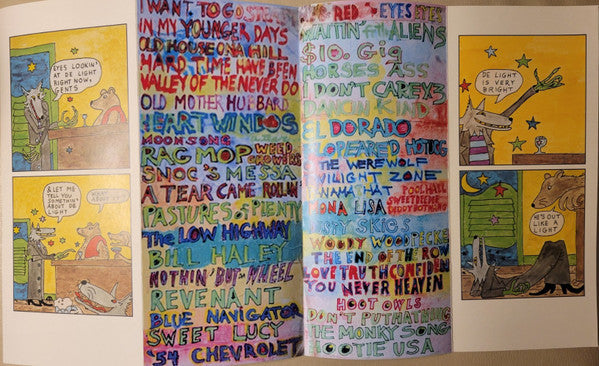 EYES LOOKIN'
AT DE LIGHT
RIGHT NOW,
GENTS
& LET ME
TELL YOU
SOMETHIN'
ABOUT DE
LIGHT
WHAT
ABOUT IT?
I WANT TO GO
IN MY YOUNGER DAYS
OLD HOUSE ON A HILL
HARD TIME HAVE BEEN
VALLEY OF THE NEVER DO
OLD MOTHER HUBBARD
HEART WINDOS
MOONSONG
RAG MOP WEED
GROWERS
SNOC'S MESSA
A TEAR CAME ROLLIN'
PASTURES of PLENTY
The LOW HIGHWAY
BILL HALEY
NOTHIN'-BUT-WHEEL
REVENANT
BLUE NAVIGATOR
SWEET LUCY
'54 CHEVROLET
RED EYES EYES
WAITIN' for the ALIENS
$10. Gig
HORSES ASS
I DON'T CAREY3
DANCIN KIND
EL DORADO
FLOPEARED HOTDG
THE WEREWOLF
TWILIGHT ZONE
PANAMA HAT POOLHALL
MONA LISA SWEETDIEDE
DADDYBOTHONG
SPY SKIES
WOODY WOODPECKE
THE END OF THE ROW
LOVE TRUTH CONFIDEN
YOU NEVER HEAVEN
HOOT OWLS
DON'T PUTHATHNG
THE MONKY SONG
HOOTIE USA
DE LIGHT
IS VERY
BRIGHT
HE'S OUT
LIKE A
LIGHT